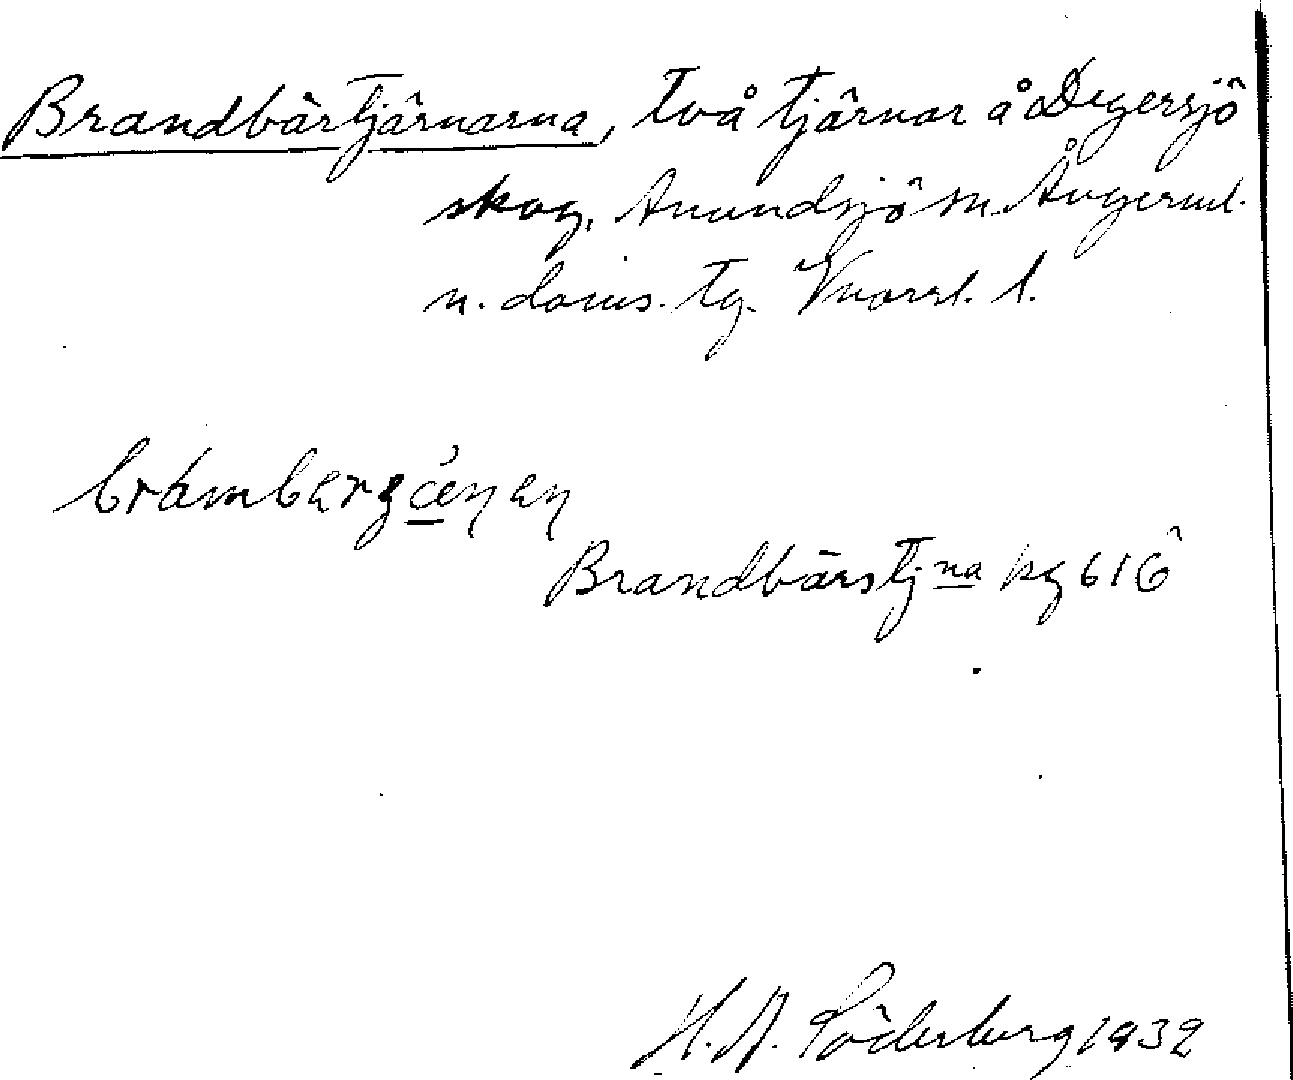 Brandbärtjärnarna, två tjärnar å Degersjö
skog, Anundsjö sn. Ångerml.
n. doms. tg. Vnorrl. l.
Brandbärstjna kg 616
H. A. Söderberg 1932